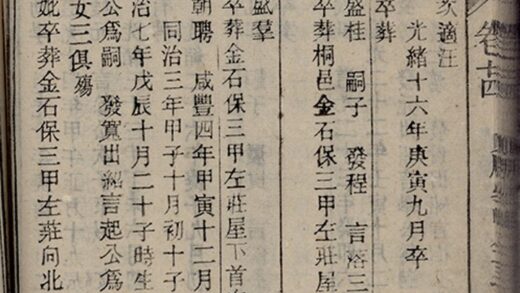 卷十四
次適汪
光緒十六年庚寅九月卒
卒葬
盛桂 嗣子 發程 言洛三
卒葬桐邑金石保三甲左莊屋
盛羣
卒葬金石保三甲左莊屋下首
朝聘 咸豐四年甲寅十二月
同治三年甲子十月初十子
治七年戊辰十月二十子時生
公爲嗣 發寬出紹言起公爲
女三俱殤
妣卒葬金石保三甲左莊向北